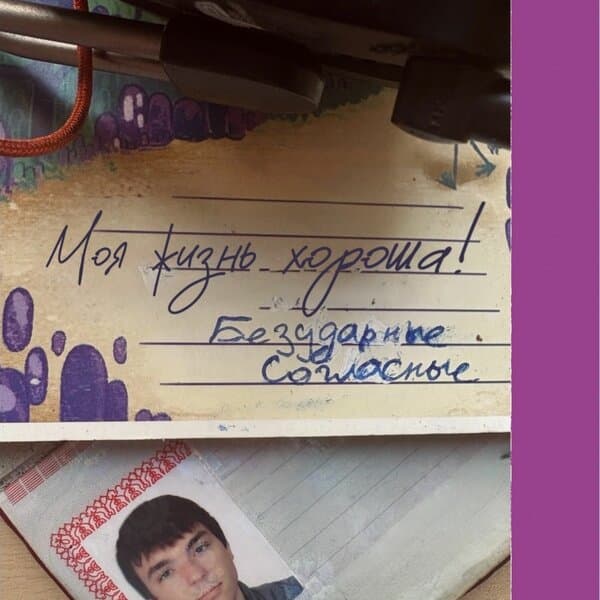 Моя жизнь хороша!
Безударные
согласные